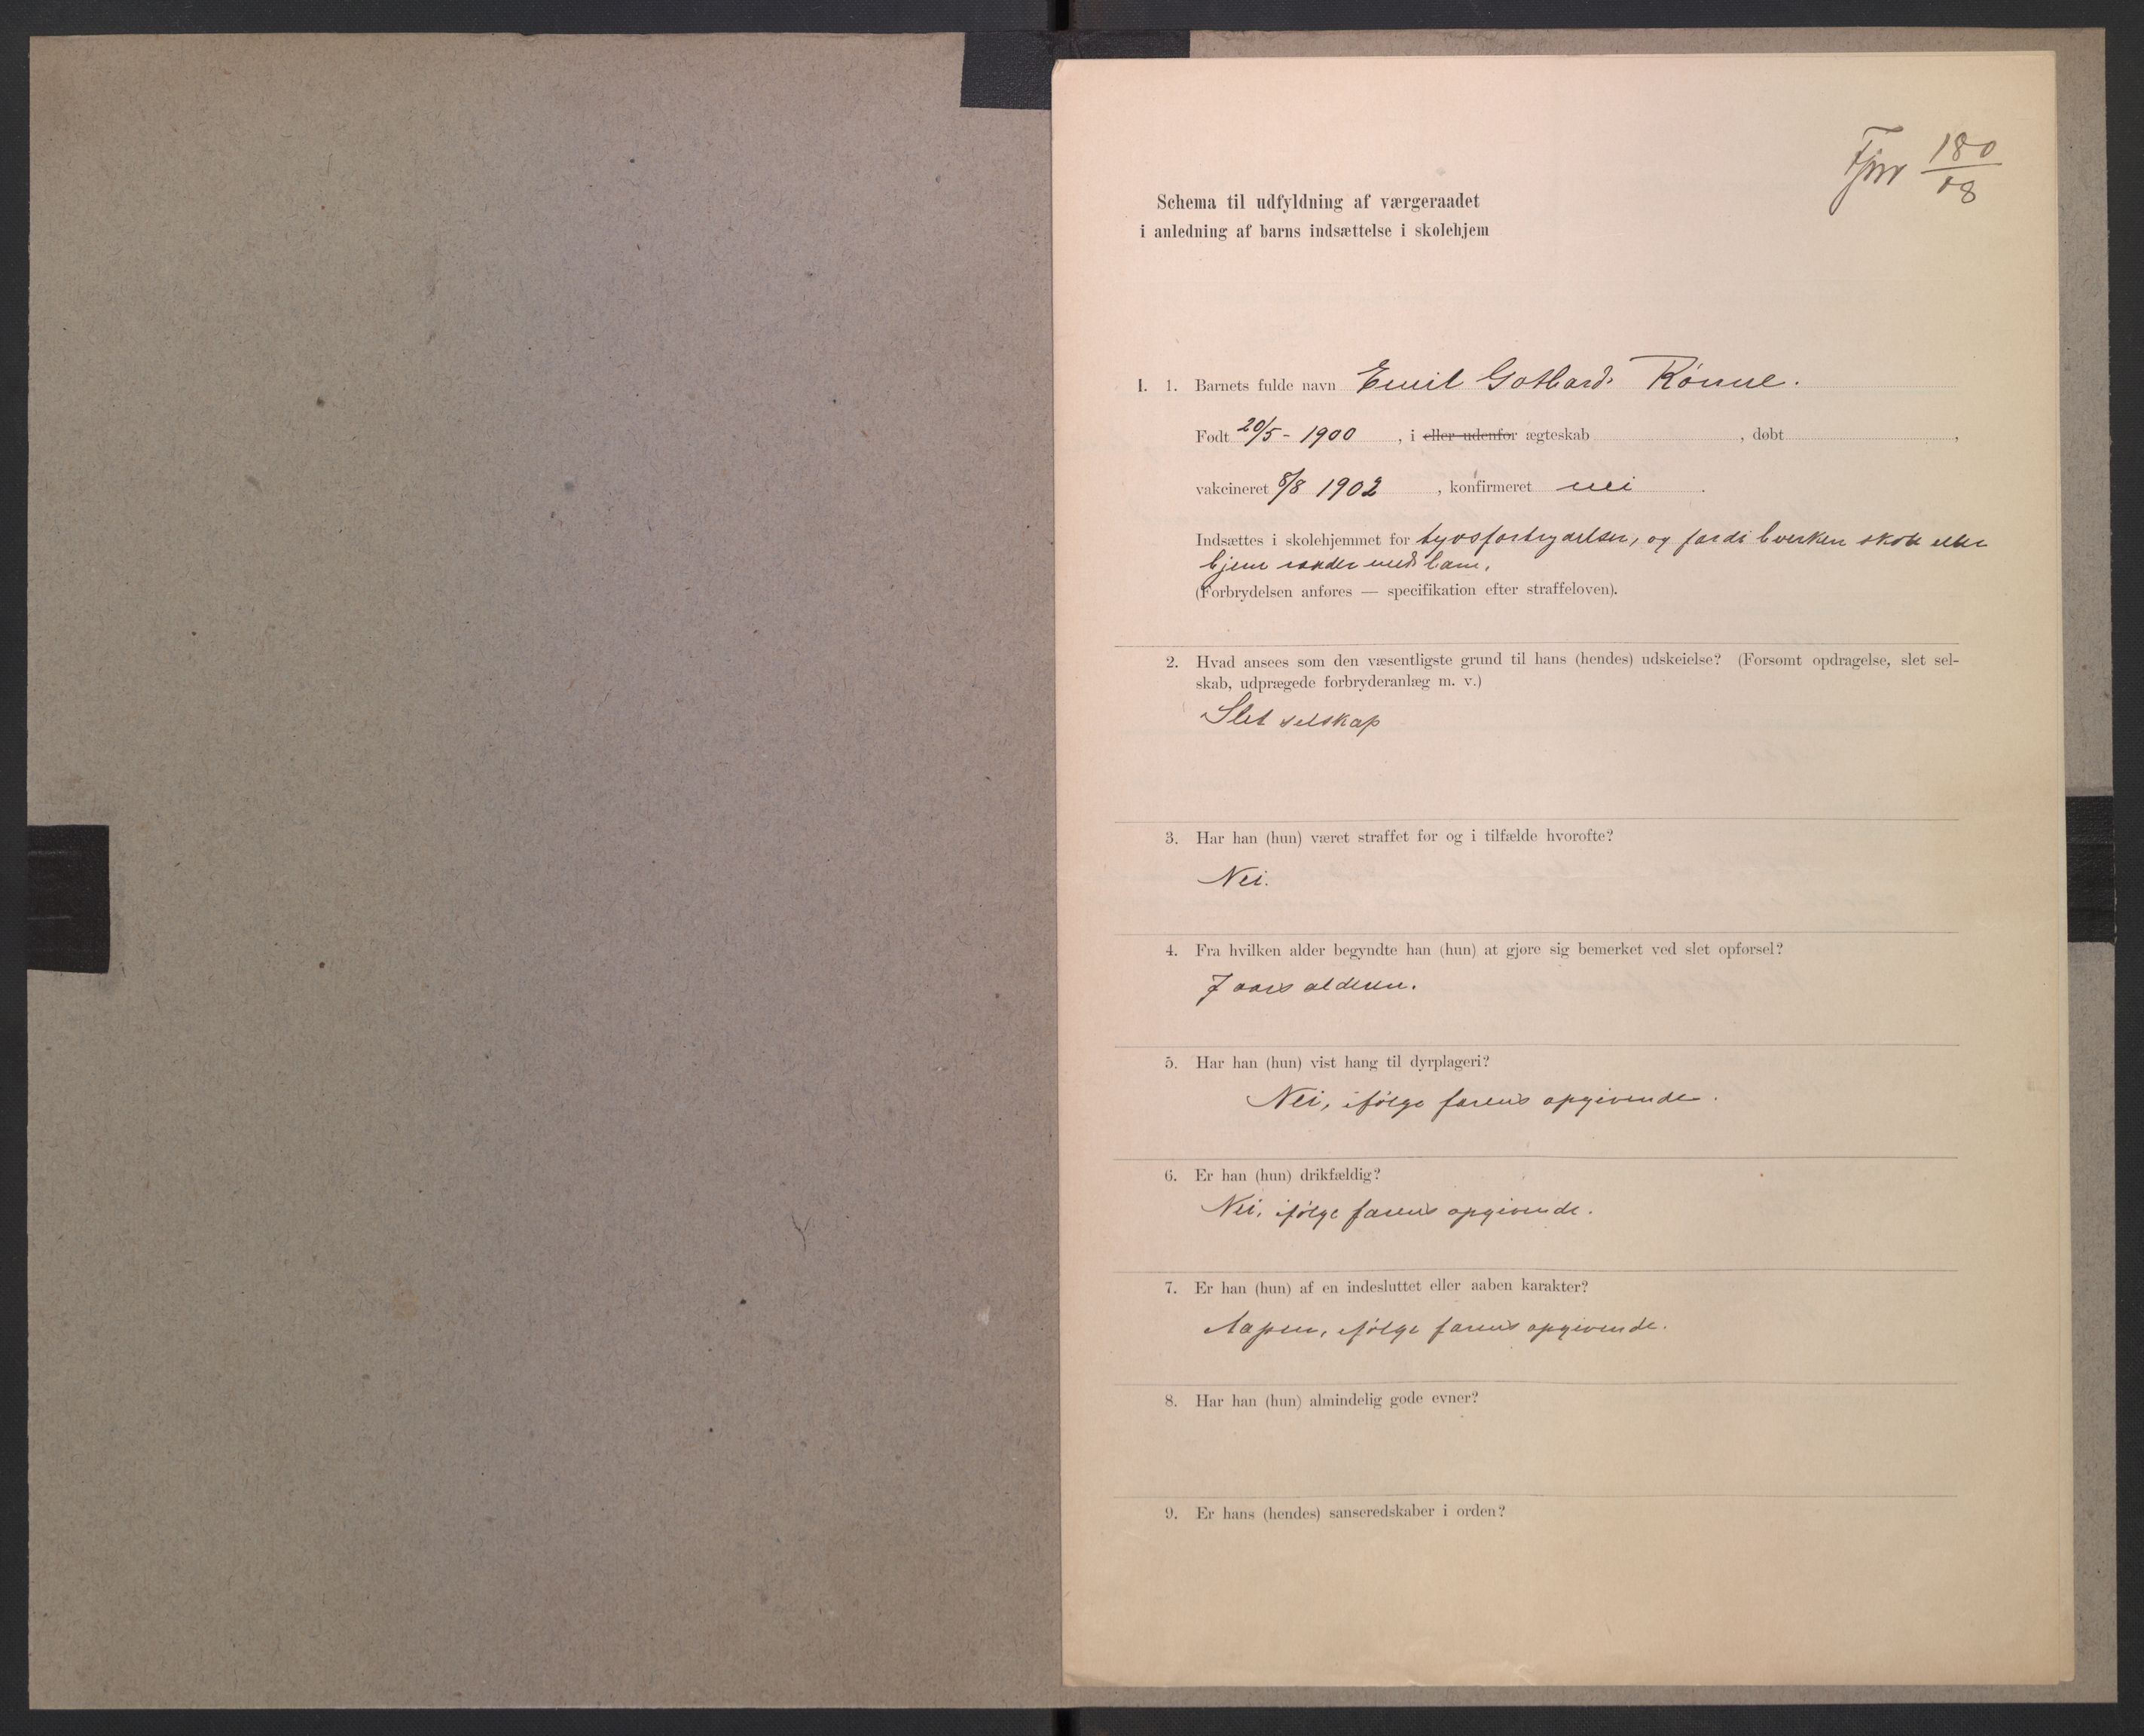 Fjnr 180/08
Schema til udfyldning af værgeraadet
i anledning af barns indsættelse i skolehjem
I. 1. Barnets fulde navn Emil Gothard Rønne.
Født 20/5 - 1900, i eller udenfor ægteskab , døbt ,
vakcineret 8/8 1902, konfirmeret nei.
Indsættes i skolehjemmet for tyvsforbrydelser, og fordi hverken skole eller
hjem raader med ham.
(Forbrydelsen anføres — specifikation efter straffeloven).
2. Hvad ansees som den væsentligste grund til hans (hendes) udskeielse? (Forsømt opdragelse, slet sel-
skab, udprægede forbryderanlæg m. v.)
Slet selskap
3. Har han (hun) været straffet før og i tilfælde hvorofte?
Nei.
4. Fra hvilken alder begyndte han (hun) at gjøre sig bemerket ved slet opførsel?
7 aars alderen.
5. Har han (hun) vist hang til dyrplageri?
Nei, ifølge farens opgivende.
6. Er han (hun) drikfældig?
Nei, ifølge farens opgivende.
7. Er han (hun) af en indesluttet eller aaben karakter?
Aapen, ifølge farens opgivende.
8. Har han (hun) almindelig gode evner?
9. Er hans (hendes) sanseredskaber i orden?